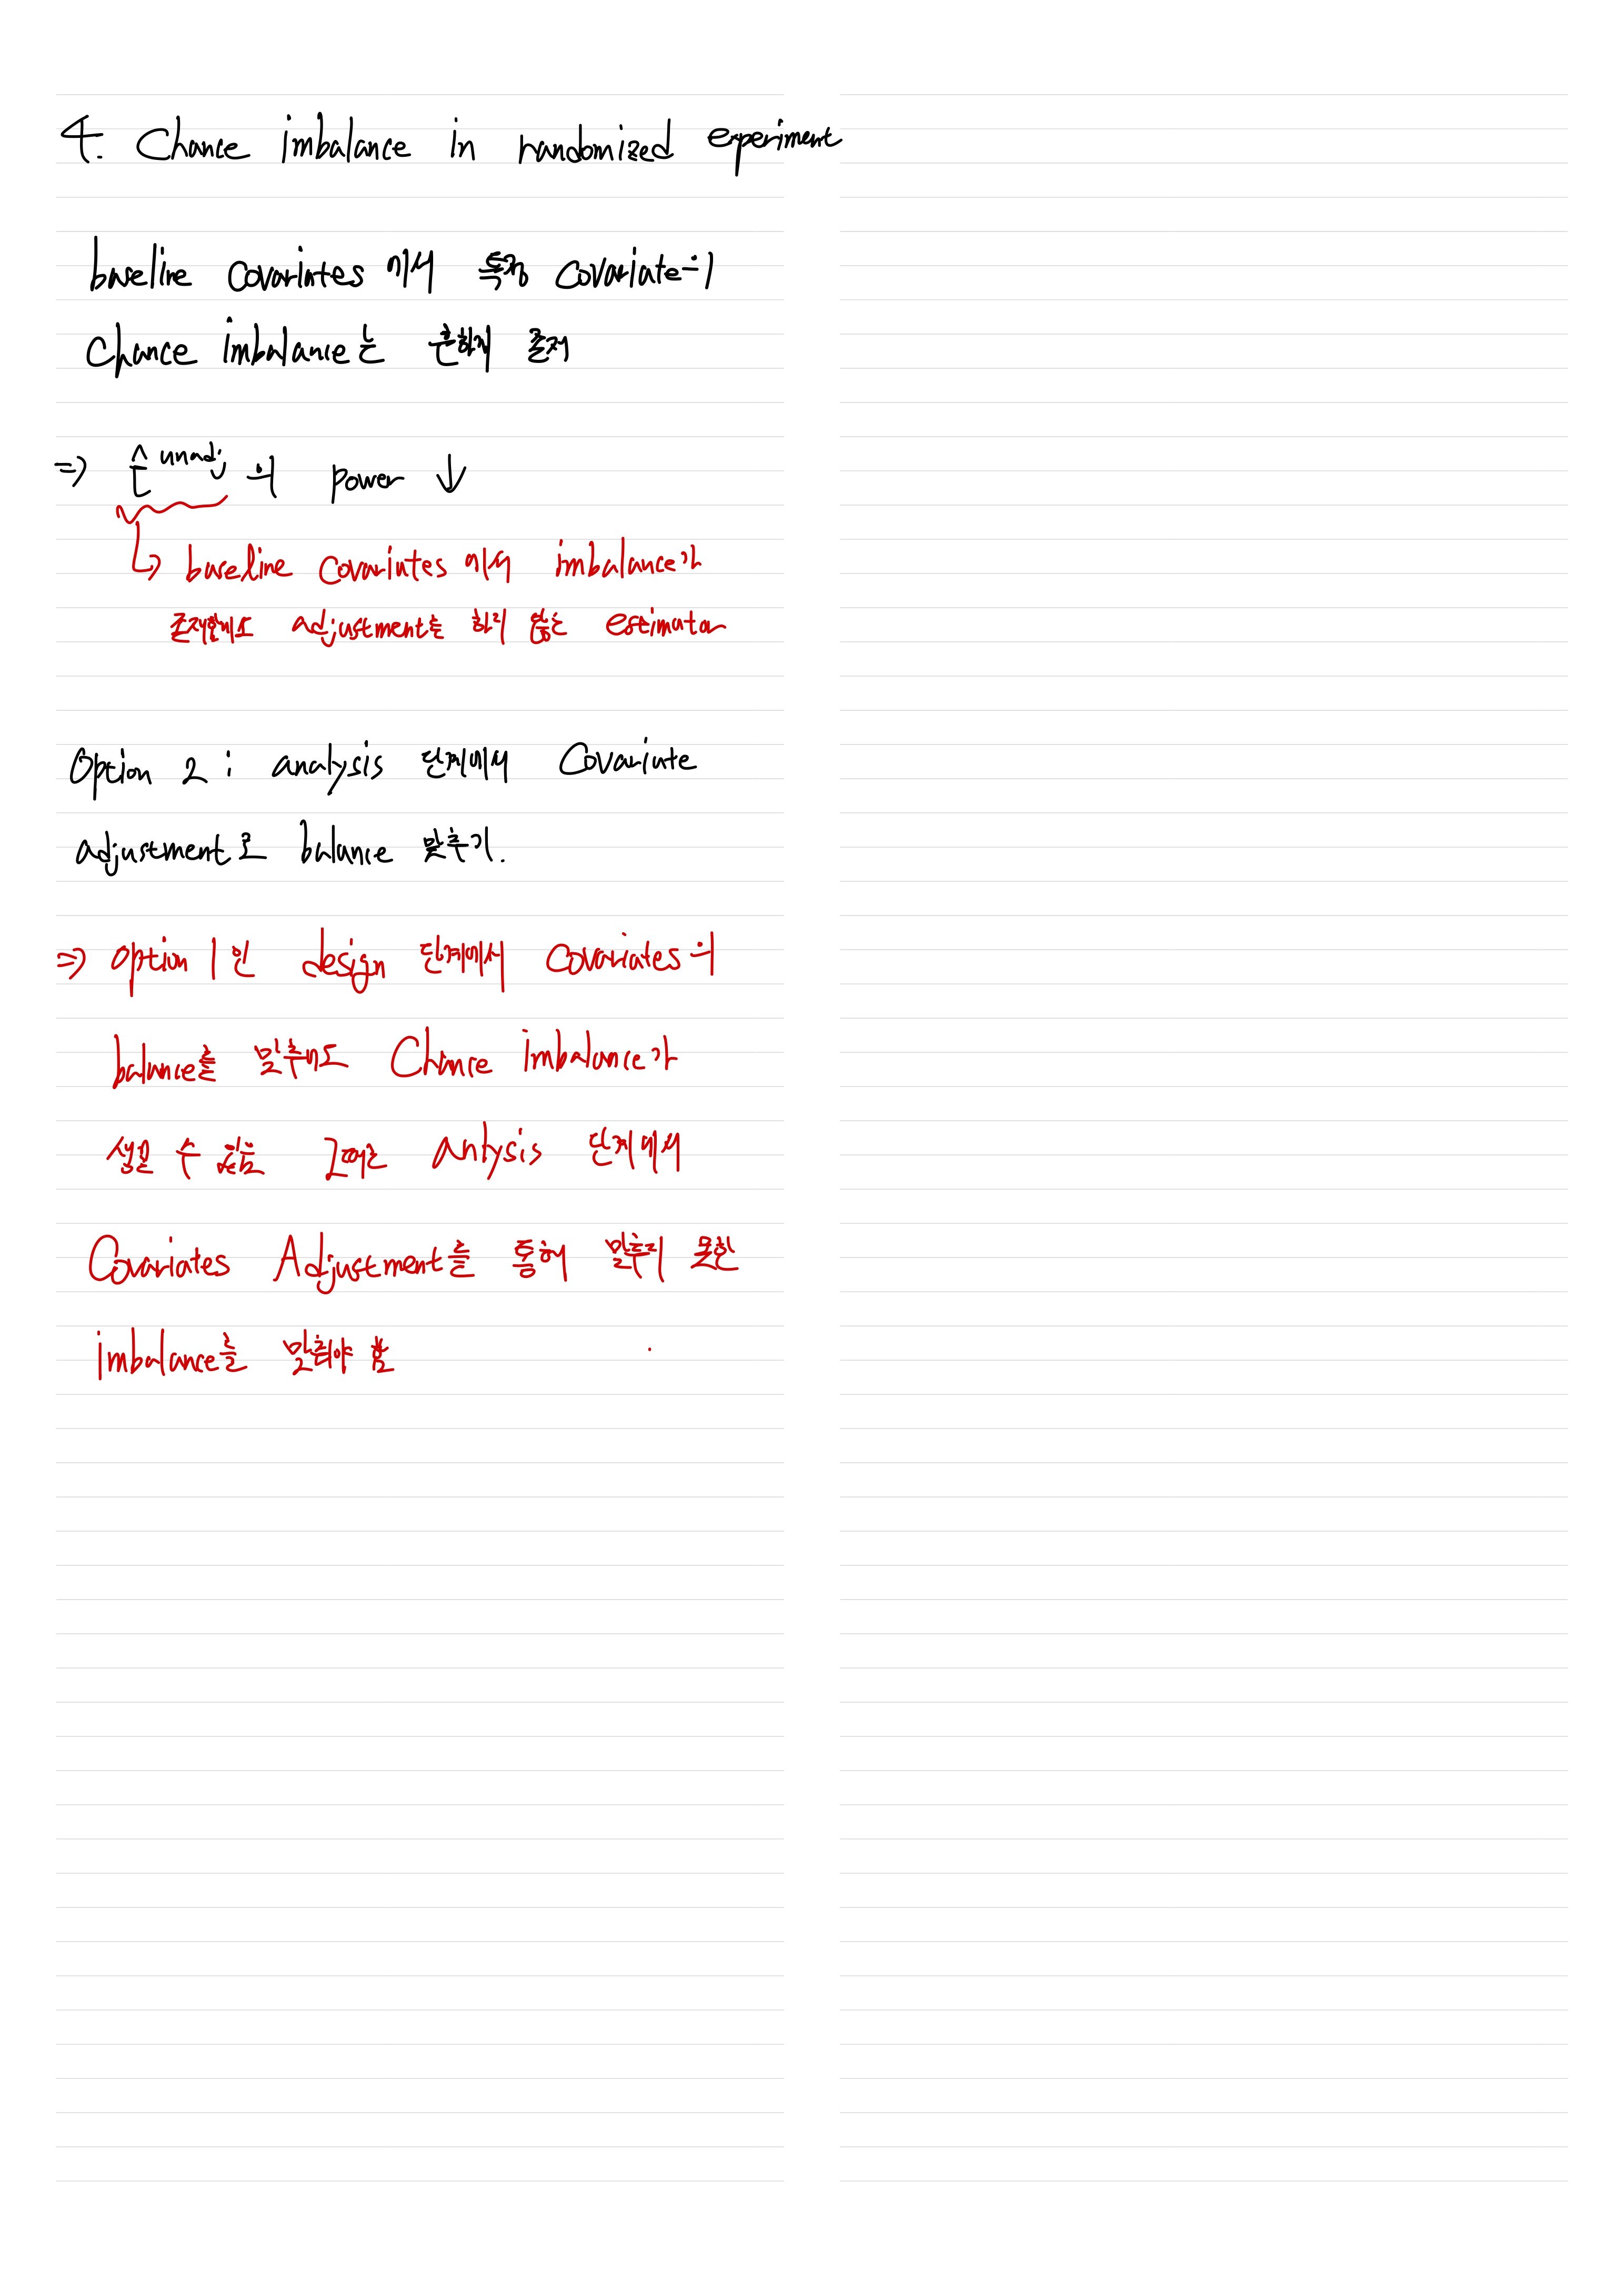 4. Chance imbalance in randomized experiment
baseline covariates 에서 특정 covariate의
Chance imbalance는 흔하게 존재
⇒ t̂ unadj 의 power ↓
↳ baseline covariates 에서 imbalance가
존재함에도 adjustment를 하지 않는 estimator
Option 2 : analysis 단계에서 Covariate
adjustment로 balance 맞추기.
⇒ option 1 인 design 단계에서 covariates의
balance를 맞추어도 Chance imbalance가
생길 수 있음 그래서 anlysis 단계에서
Covariates Adjustment를 통해 맞추지 못한
imbalance를 맞춰야 함